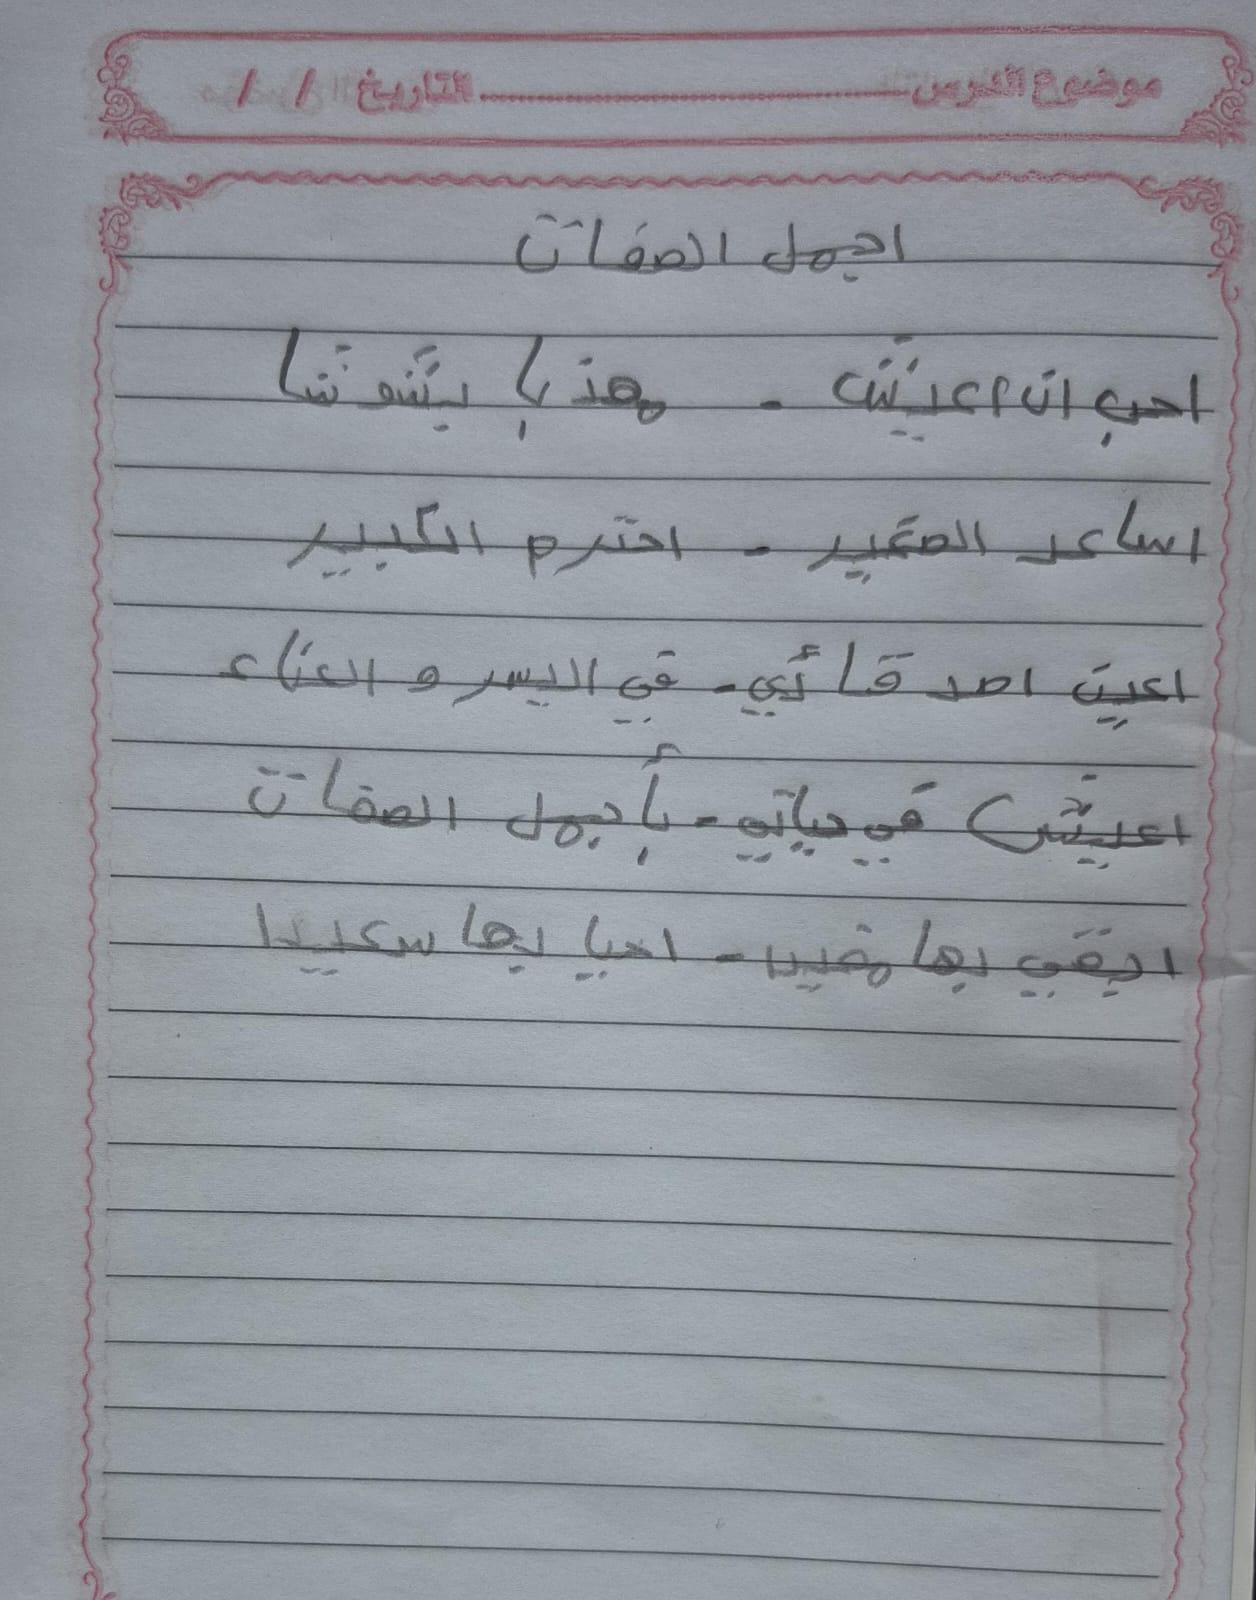 موضوع الدرس التاريخ / /
اجمل الصفات
احب ان اعيش - مهذبا بشوشا
اساعد الصغير - احترم الكبير
اعين اصدقائي - في اليسر و العناء
اعيش في حياتي - بأجمل الصفات
ابقي بها مفيدا - احيا بها سعيدا